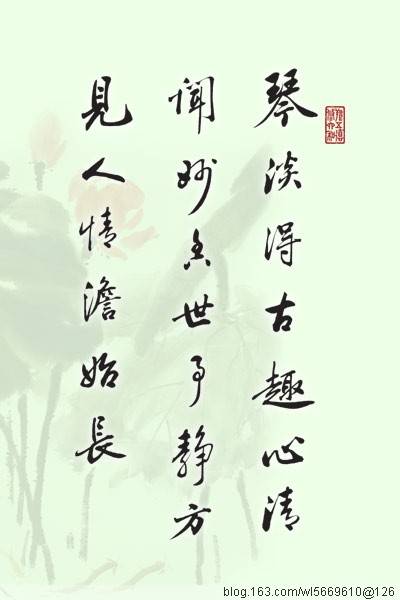 琴淡得古趣心清
聞妙香世事静方
見人情澹始長
blog.163.com/wl5669610@126